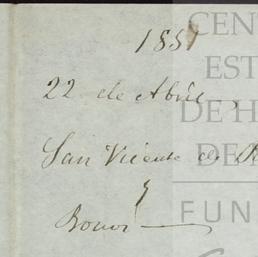 1851
22 de Abril
San Vicente de
y
Bonoi
CEN
EST
DE H
DE
FUN